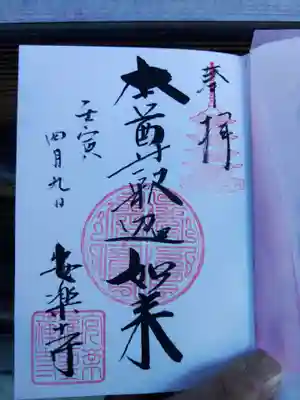 奉拝
本尊釈迦如来
壬寅
四月九日
安楽寺